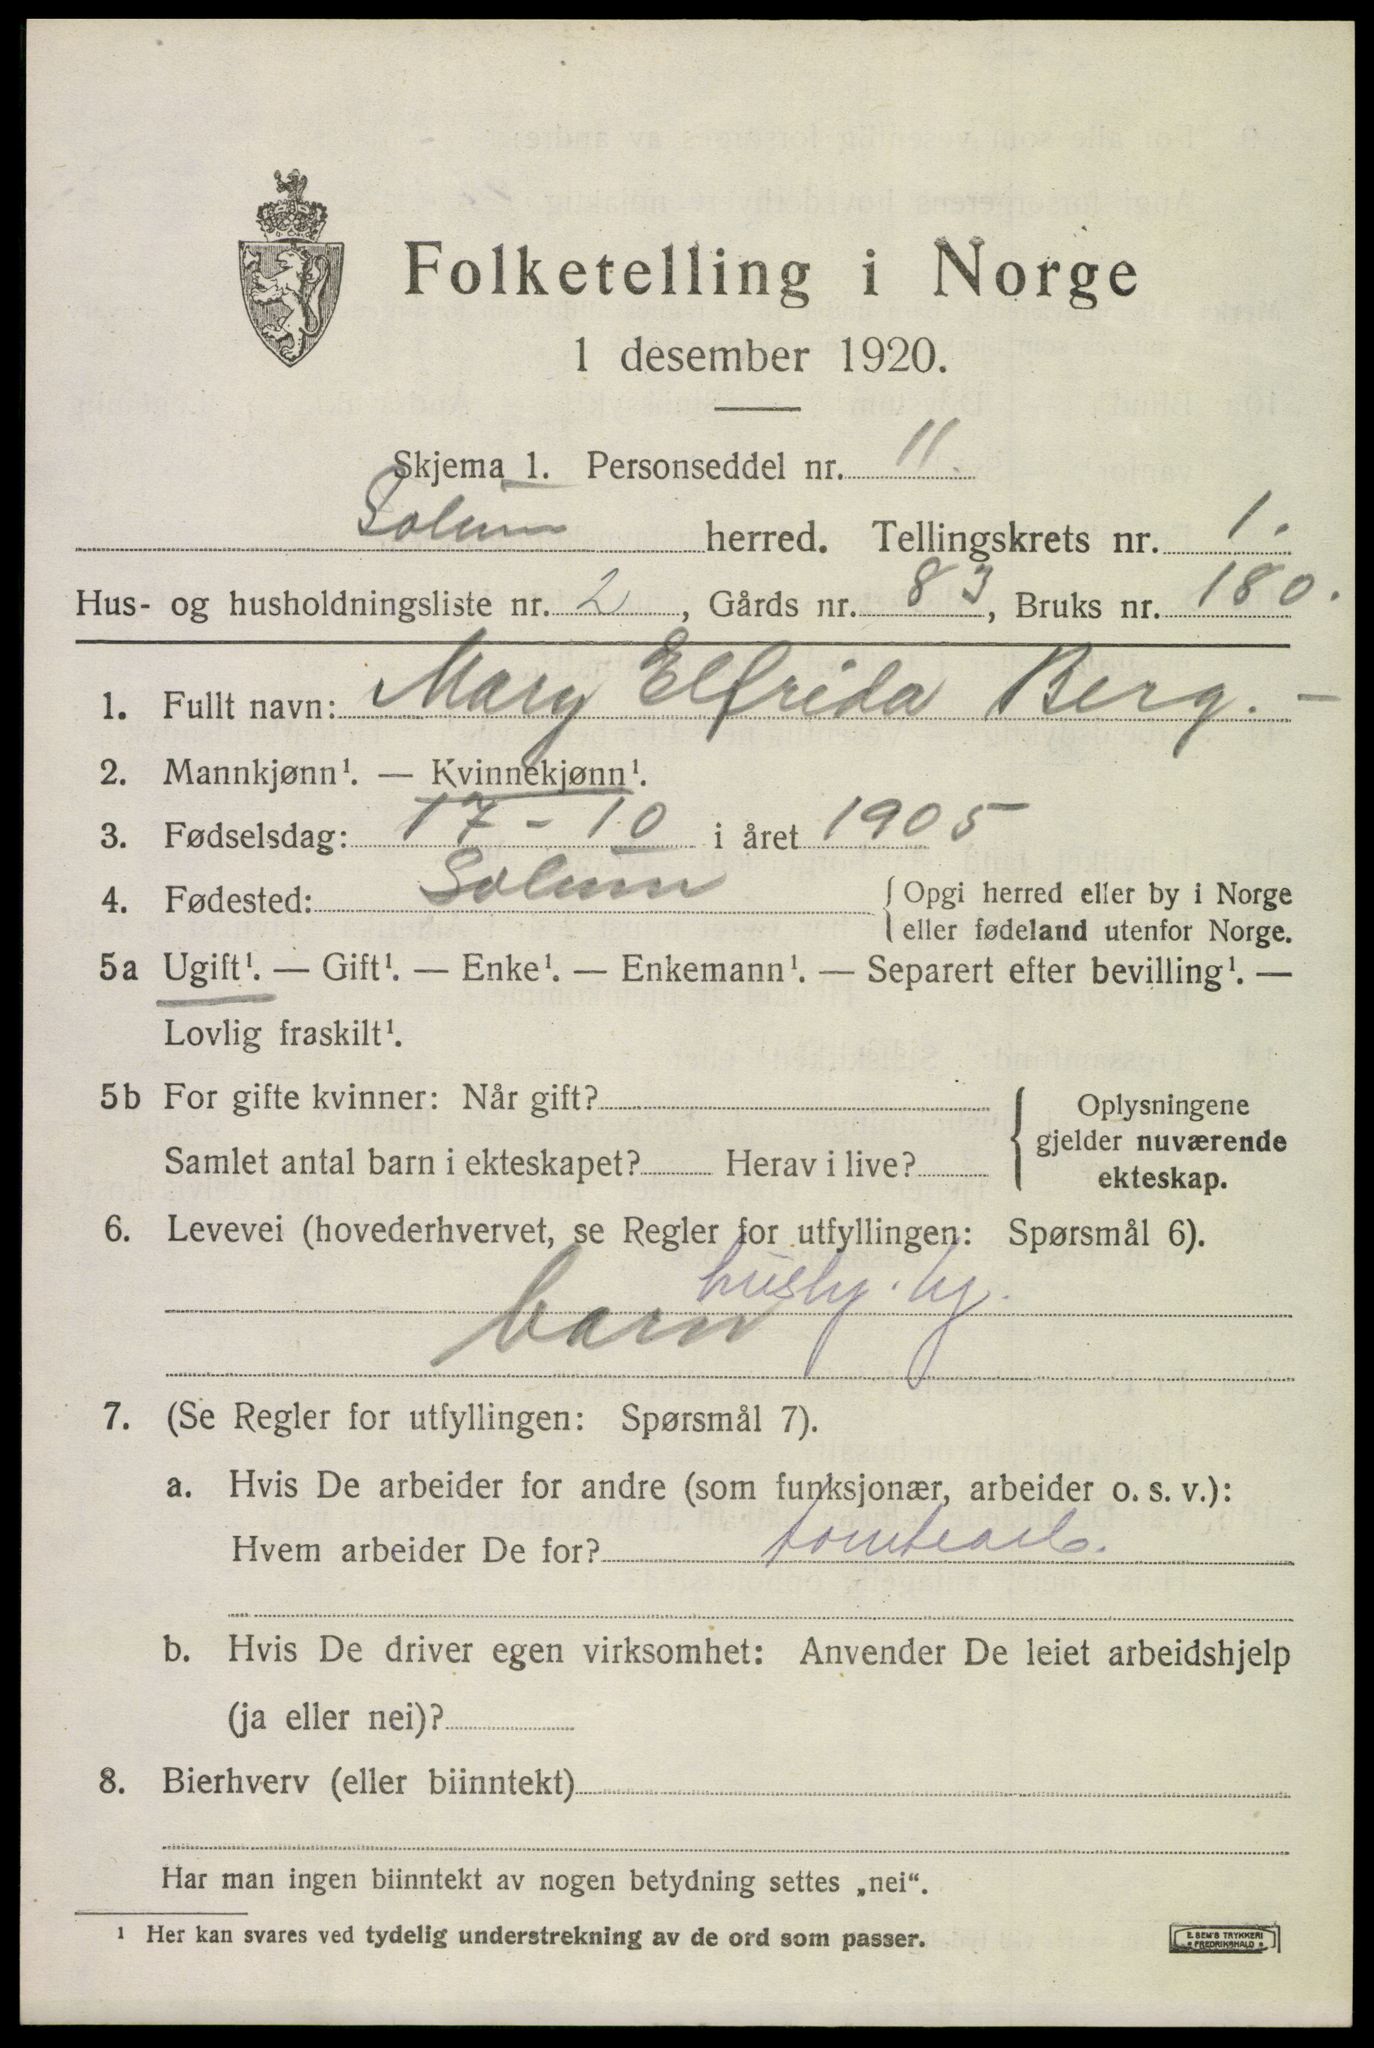 Folketelling i Norge
1 desember 1920.
Skjema 1. Personseddel nr. 11.
Solum herred. Tellingskrets nr. 1.
Hus- og husholdningsliste nr. 2, Gårds nr. 83, Bruks nr. 180.
1. Fullt navn: Mary Elfrida Berg. —
2. Mannkjønn¹. — Kvinnekjønn¹.
3. Fødselsdag: 17 - 10 i året 1905
4. Fødested: Solum { Opgi herred eller by i Norge
eller fødeland utenfor Norge.
5a Ugift¹. — Gift¹. — Enke¹. — Enkemann¹. — Separert efter bevilling¹. —
Lovlig fraskilt¹.
5b For gifte kvinner: Når gift? { Oplysningene
gjelder nuværende
Samlet antal barn i ekteskapet? Herav i live?
ekteskap.
6. Levevei (hovederhvervet, se Regler for utfyllingen: Spørsmål 6).
barn
7. (Se Regler for utfyllingen: Spørsmål 7).
a. Hvis De arbeider for andre (som funksjonær, arbeider o. s. v.):
Hvem arbeider De for? tomtearb.
b. Hvis De driver egen virksomhet: Anvender De leiet arbeidshjelp
(ja eller nei)?
8. Bierhverv (eller biinntekt)
Har man ingen biinntekt av nogen betydning settes „nei“.
¹ Her kan svares ved tydelig understrekning av de ord som passer.
E. SEM'S TRYKKERI
FREDRIKSHALD